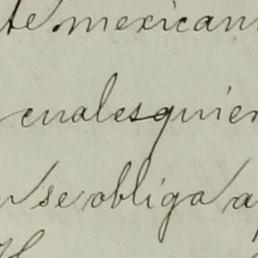 te mexican
cualesquier
se obliga a